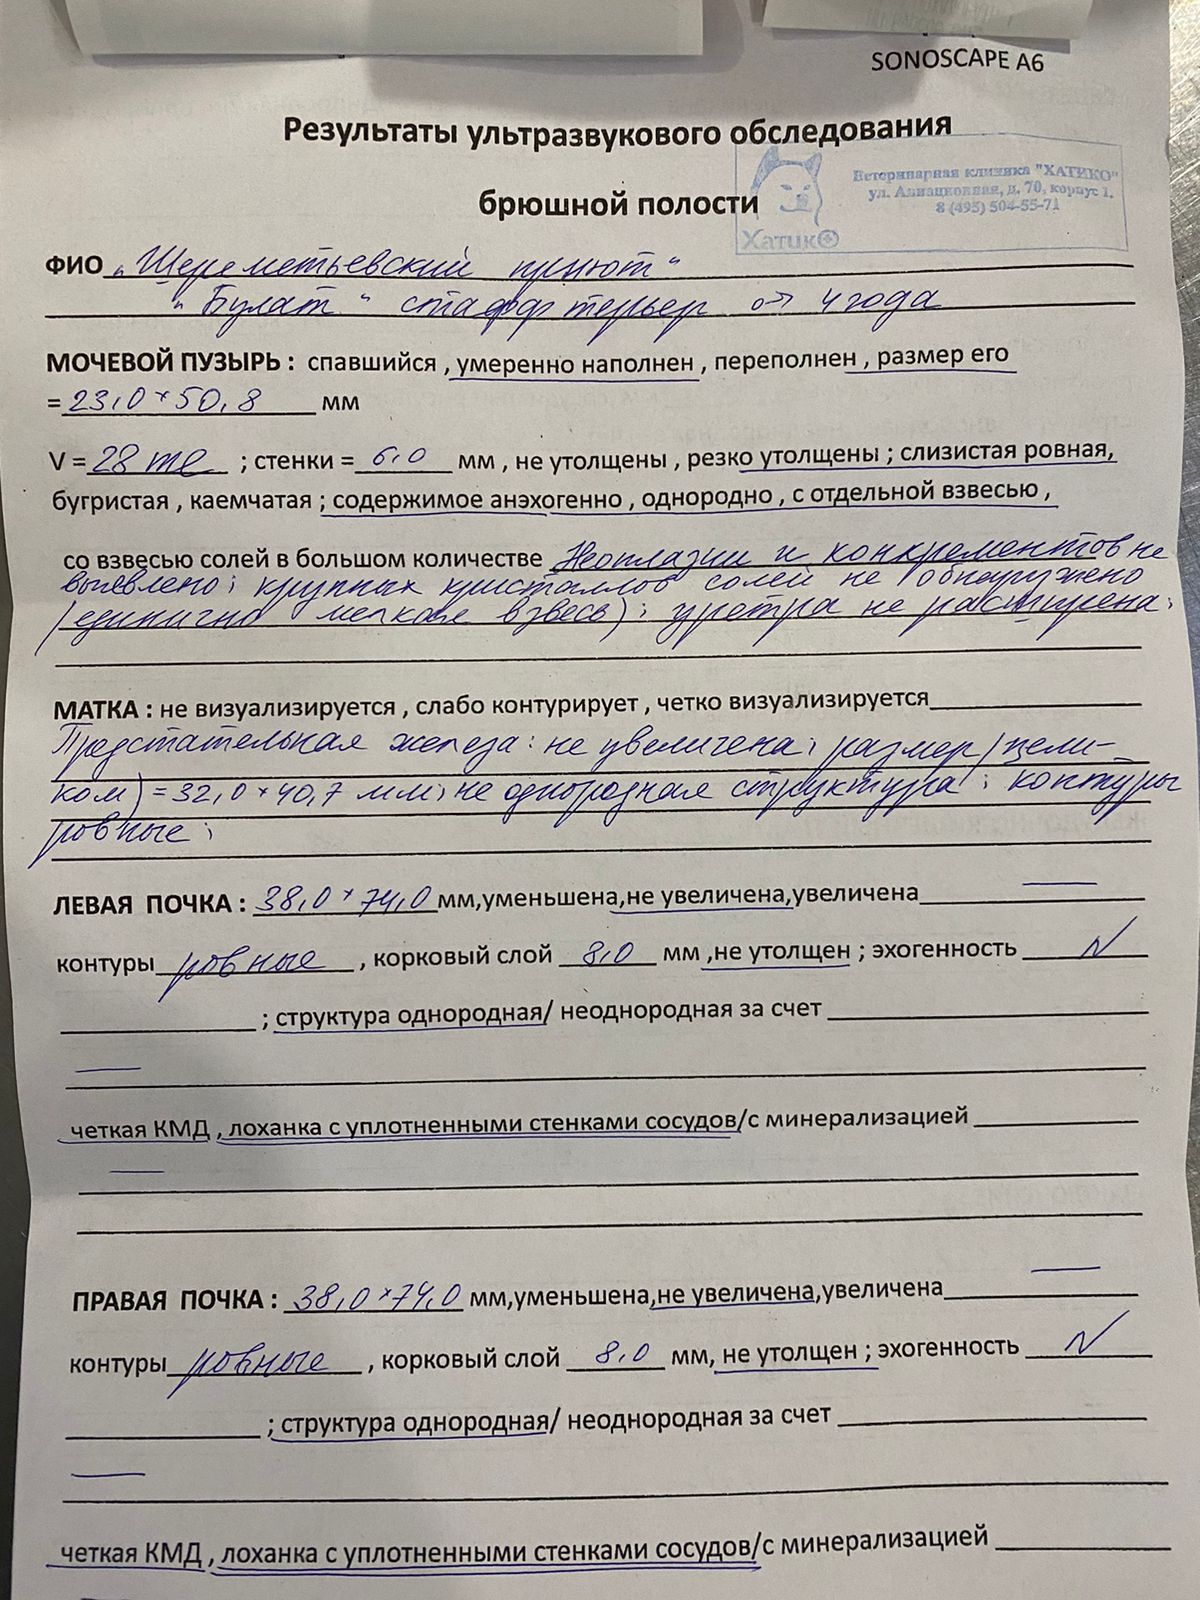 SONOSCAPE A6
Результаты ультразвукового обследования
брюшной полости
Ветеринарная клиника "ХАТИКО"
ул. Авиационная, д. 70, корпус 1.
8 (495) 504-55-71
Хатико
ФИО "Шереметьевский приют"
"Булат" стафф терьер ♂ 4 года
МОЧЕВОЙ ПУЗЫРЬ : спавшийся , умеренно наполнен , переполнен , размер его
= 23,0 × 50,8 мм
V = 28 ml ; стенки = 6,0 мм , не утолщены , резко утолщены ; слизистая ровная,
бугристая , каемчатая ; содержимое анэхогенно , однородно , с отдельной взвесью ,
со взвесью солей в большом количестве Неоплазии и конкрементов не
выявлено; крупных кристаллов солей не обнаружено
(единично мелкая взвесь); уретра не расширена;
МАТКА : не визуализируется , слабо контурирует , четко визуализируется
Предстательная железа: не увеличена; размер (цели-
ком) = 32,0 × 40,7 мм; не однородная структура; контуры
ровные;
ЛЕВАЯ ПОЧКА : 38,0 × 74,0 мм,уменьшена,не увеличена,увеличена —
контуры ровные , корковый слой 8,0 мм ,не утолщен ; эхогенность N
; структура однородная/ неоднородная за счет
—
четкая КМД , лоханка с уплотненными стенками сосудов/с минерализацией
—
ПРАВАЯ ПОЧКА : 38,0 × 74,0 мм,уменьшена,не увеличена,увеличена —
контуры ровные , корковый слой 8,0 мм, не утолщен ; эхогенность N
; структура однородная/ неоднородная за счет
—
четкая КМД , лоханка с уплотненными стенками сосудов/с минерализацией